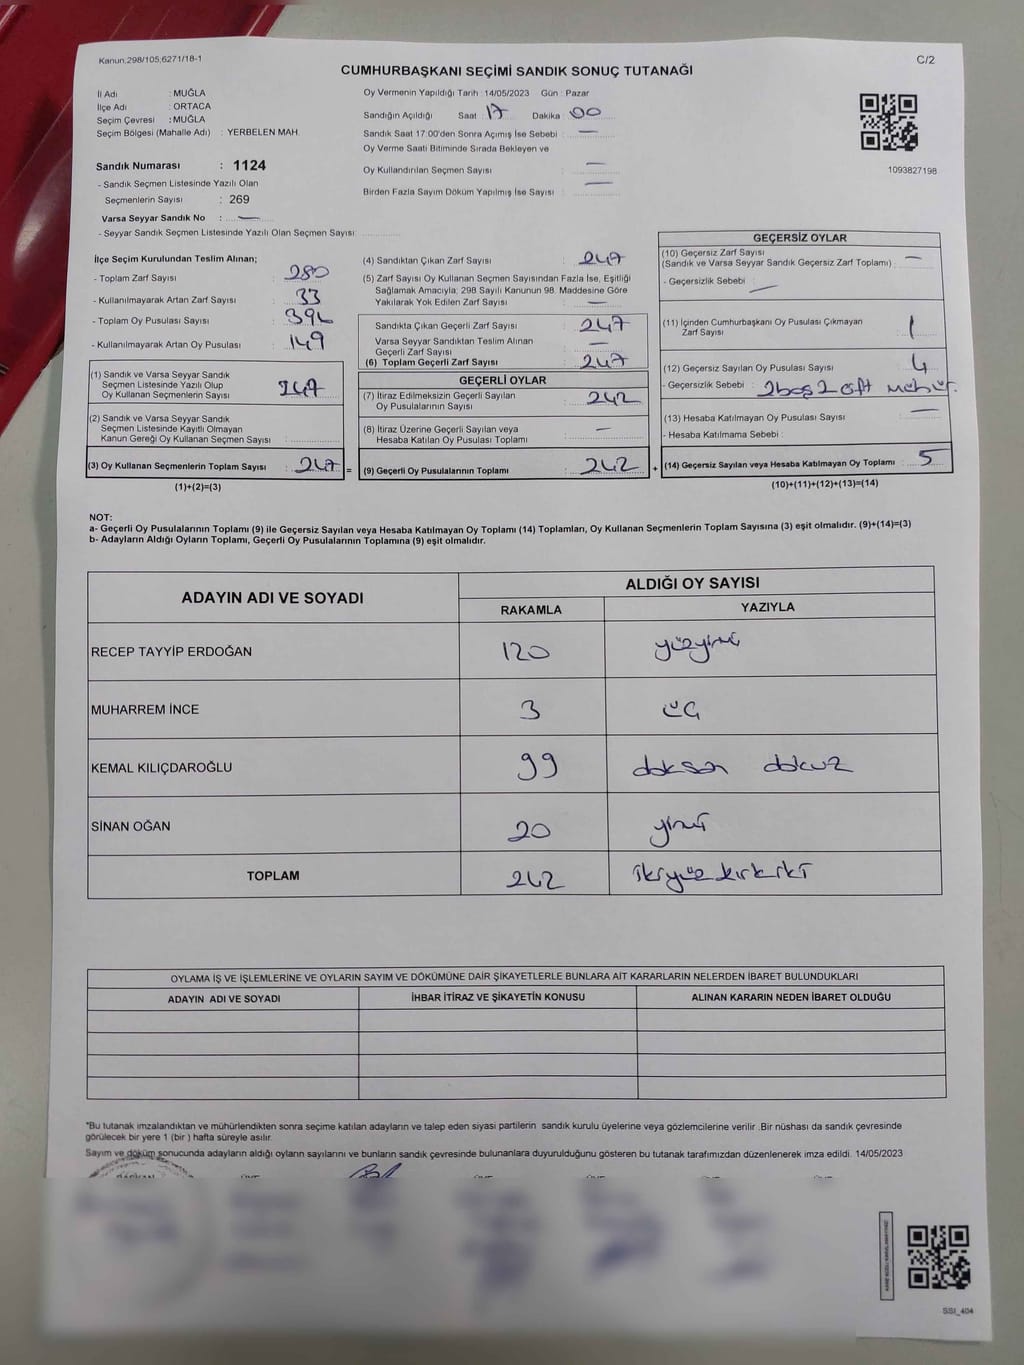 Kanun.298/105,6271/18-1
C/2
CUMHURBAŞKANI SEÇİMİ SANDIK SONUÇ TUTANAĞI
İl Adı : MUĞLA
İlçe Adı : ORTACA
Seçim Çevresi : MUĞLA
Seçim Bölgesi (Mahalle Adı) : YERBELEN MAH.
Sandık Numarası : 1124
- Sandık Seçmen Listesinde Yazılı Olan
Seçmenlerin Sayısı : 269
Varsa Seyyar Sandık No : —
- Seyyar Sandık Seçmen Listesinde Yazılı Olan Seçmen Sayısı:
Oy Vermenin Yapıldığı Tarih : 14/05/2023 Gün : Pazar
Sandığın Açıldığı Saat : 17 Dakika : 00
Sandık Saat 17:00'den Sonra Açımış İse Sebebi : —
Oy Verme Saati Bitiminde Sırada Bekleyen ve
Oy Kullandırılan Seçmen Sayısı : —
Birden Fazla Sayım Döküm Yapılmış İse Sayısı : —
1093827198
İlçe Seçim Kurulundan Teslim Alınan;
- Toplam Zarf Sayısı : 280
- Kullanılmayarak Artan Zarf Sayısı : 33
- Toplam Oy Pusulası Sayısı : 396
- Kullanılmayarak Artan Oy Pusulası : 149
(1) Sandık ve Varsa Seyyar Sandık
Seçmen Listesinde Yazılı Olup
Oy Kullanan Seçmenlerin Sayısı : 247
(2) Sandık ve Varsa Seyyar Sandık
Seçmen Listesinde Kayıtlı Olmayan
Kanun Gereği Oy Kullanan Seçmen Sayısı :
(3) Oy Kullanan Seçmenlerin Toplam Sayısı : 247 =
(1)+(2)=(3)
(4) Sandıktan Çıkan Zarf Sayısı : 247
(5) Zarf Sayısı Oy Kullanan Seçmen Sayısından Fazla İse, Eşitliği
Sağlamak Amacıyla; 298 Sayılı Kanunun 98. Maddesine Göre
Yakılarak Yok Edilen Zarf Sayısı : —
Sandıkta Çıkan Geçerli Zarf Sayısı : 247
Varsa Seyyar Sandıktan Teslim Alınan
Geçerli Zarf Sayısı : —
(6) Toplam Geçerli Zarf Sayısı : 247
GEÇERLİ OYLAR
(7) İtiraz Edilmeksizin Geçerli Sayılan
Oy Pusulalarının Sayısı : 242
(8) İtiraz Üzerine Geçerli Sayılan veya
Hesaba Katılan Oy Pusulası Toplamı : —
(9) Geçerli Oy Pusulalarının Toplamı : 242 +
GEÇERSİZ OYLAR
(10) Geçersiz Zarf Sayısı
(Sandık ve Varsa Seyyar Sandık Geçersiz Zarf Toplamı) : —
- Geçersizlik Sebebi : —
(11) İçinden Cumhurbaşkanı Oy Pusulası Çıkmayan
Zarf Sayısı : 1
(12) Geçersiz Sayılan Oy Pusulası Sayısı : 4
- Geçersizlik Sebebi : 2boş 2 çift mühür.
(13) Hesaba Katılmayan Oy Pusulası Sayısı : —
- Hesaba Katılmama Sebebi :
(14) Geçersiz Sayılan veya Hesaba Katılmayan Oy Toplamı : 5
(10)+(11)+(12)+(13)=(14)
NOT:
a- Geçerli Oy Pusulalarının Toplamı (9) ile Geçersiz Sayılan veya Hesaba Katılmayan Oy Toplamı (14) Toplamları, Oy Kullanan Seçmenlerin Toplam Sayısına (3) eşit olmalıdır. (9)+(14)=(3)
b- Adayların Aldığı Oyların Toplamı, Geçerli Oy Pusulalarının Toplamına (9) eşit olmalıdır.
ADAYIN ADI VE SOYADI
ALDIĞI OY SAYISI
RAKAMLA YAZIYLA
RECEP TAYYİP ERDOĞAN 120 yüzyirmi
MUHARREM İNCE 3 üç
KEMAL KILIÇDAROĞLU 99 doksan dokuz
SİNAN OĞAN 20 yirmi
TOPLAM 242 ikiyüz kırkiki
OYLAMA İŞ VE İŞLEMLERİNE VE OYLARIN SAYIM VE DÖKÜMÜNE DAİR ŞİKAYETLERLE BUNLARA AİT KARARLARIN NELERDEN İBARET BULUNDUKLARI
ADAYIN ADI VE SOYADI İHBAR İTİRAZ VE ŞİKAYETİN KONUSU ALINAN KARARIN NEDEN İBARET OLDUĞU
*Bu tutanak imzalandıktan ve mühürlendikten sonra seçime katılan adayların ve talep eden siyasi partilerin sandık kurulu üyelerine veya gözlemcilerine verilir .Bir nüshası da sandık çevresinde
görülecek bir yere 1 (bir ) hafta süreyle asılır.
Sayım ve döküm sonucunda adayların aldığı oyların sayılarını ve bunların sandık çevresinde bulunanlara duyurulduğunu gösteren bu tutanak tarafımızdan düzenlenerek imza edildi. 14/05/2023
SSI_404